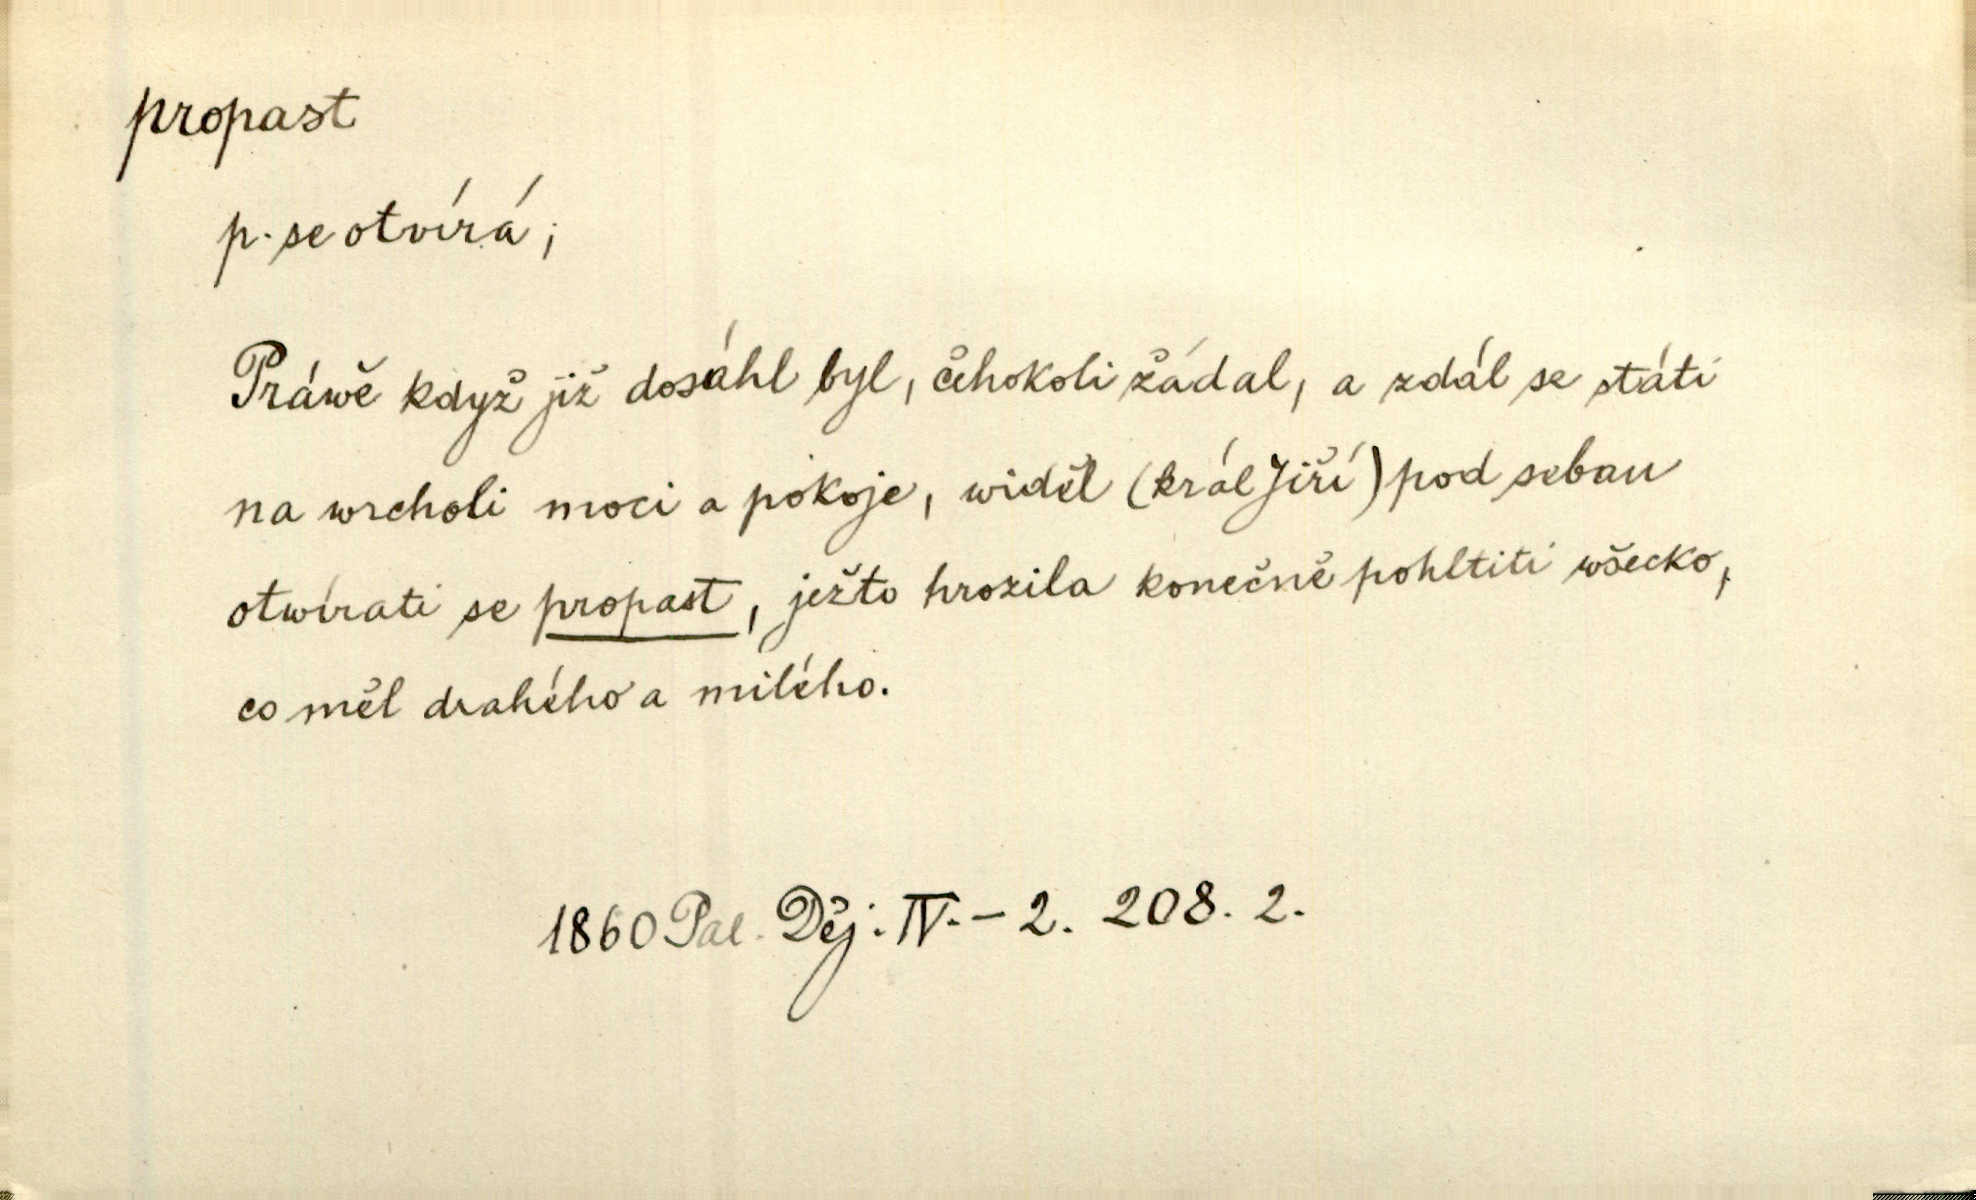 propast
p. se otvírá;
Práwě když již dosáhl byl, čehokoli žádal, a zdál se státi
na wrcholi moci a pokoje, widěl (král Jiří) pod sebau
otwírati se propast, ježto hrozila konečně pohltiti wšecko,
co měl drahého a milého.
1860 Pal. Děj: IV. – 2. 208. 2.